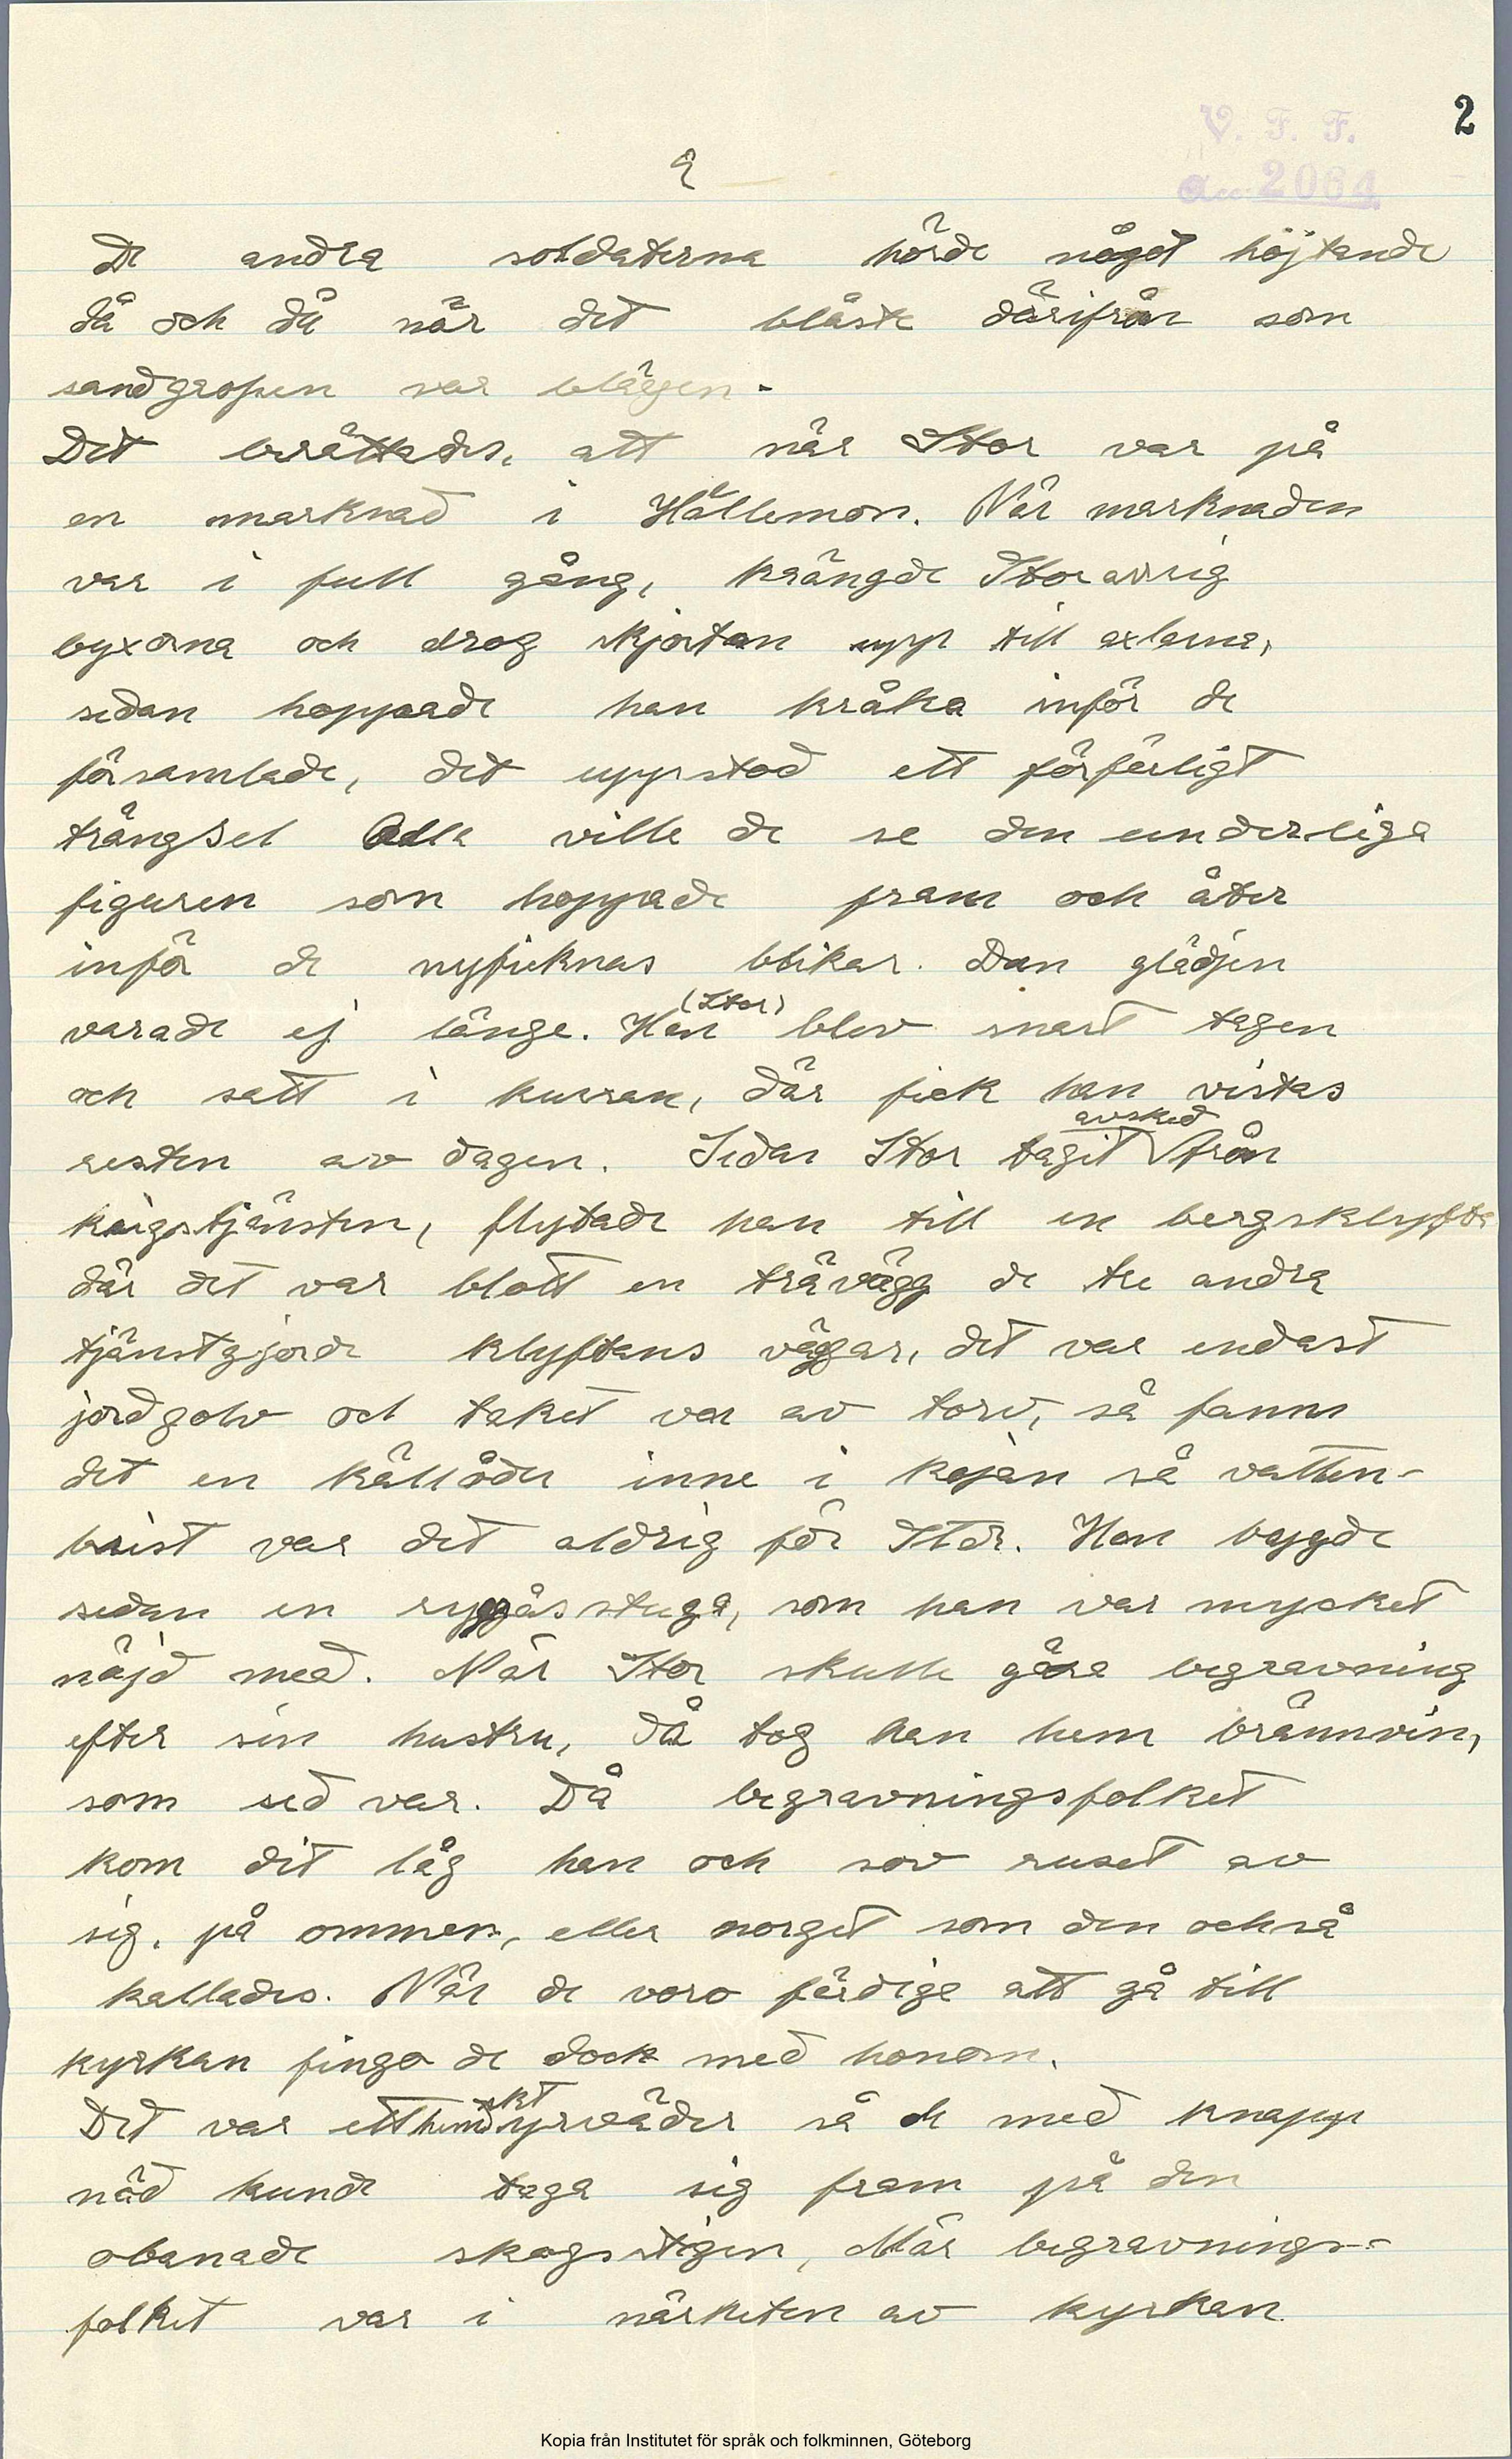 2
V. F. F.
Acc 2064
2
De andra soldaterna hörde något höjtande
då och då när det blåste därifrån som
sandgropen var belägen.
Det berättades, att när Stor var på
en marknad i Hällemon. När marknaden
var i full gång, krängde Stor av sig
byxorna och drog skjortan upp till axlarna,
sedan hoppade han kråka inför de
församlade, det uppstod ett förfärligt
trängsel Alla ville de se den underliga
figuren som hoppade fram och åter
inför de nyfieknas blikar. Den glädjen
varade ej länge. Han (Stor) blev snart tagen
och satt i kurran, där fick han vistas
resten av dagen. Sedan Stor tagit avsked från
krigstjänsten, flytade han till en bergsklyfta
där det var blott en trävägg de tre andra
tjänstgjorde klyftans väggar, det var endast
jordgolv och taket var av torv, så fanns
det en källåder inne i kojan så vatten-
brist var det aldrig för Stor. Han bygde
sedan en ryggåsstuga, som han var mycket
nöjd med. När Stor skulle göra begravning
efter sin hustru, då tog han hem brännvin,
som sed var. Då begravningsfolket
kom dit låg han och sov ruset av
sig, på ommen, eller norget som den också
kallades. När de voro färdiga att gå till
kyrkan fingo de dock med honom.
Det var ett hemskt yrväder så de med knapp
nöd kunde taga sig fram på den
obanade skogsstigen, När begravnings-
folket var i närheten av kyrkan
Kopia från Institutet för språk och folkminnen, Göteborg